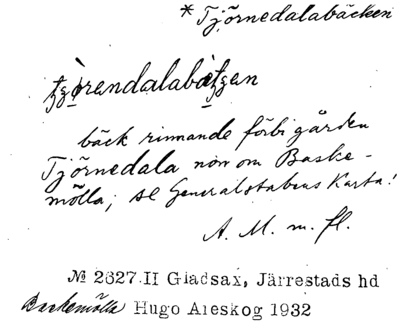 * Tjörnedalabäcken
bäck rinnande förbi gården
Tjörnedala norr om Baske-
mölla; se Generalstabens Karta!
A. M. m. fl.
№ 2627.II Gladsax, Järrestads hd
Baskemölla Hugo Areskog 1932